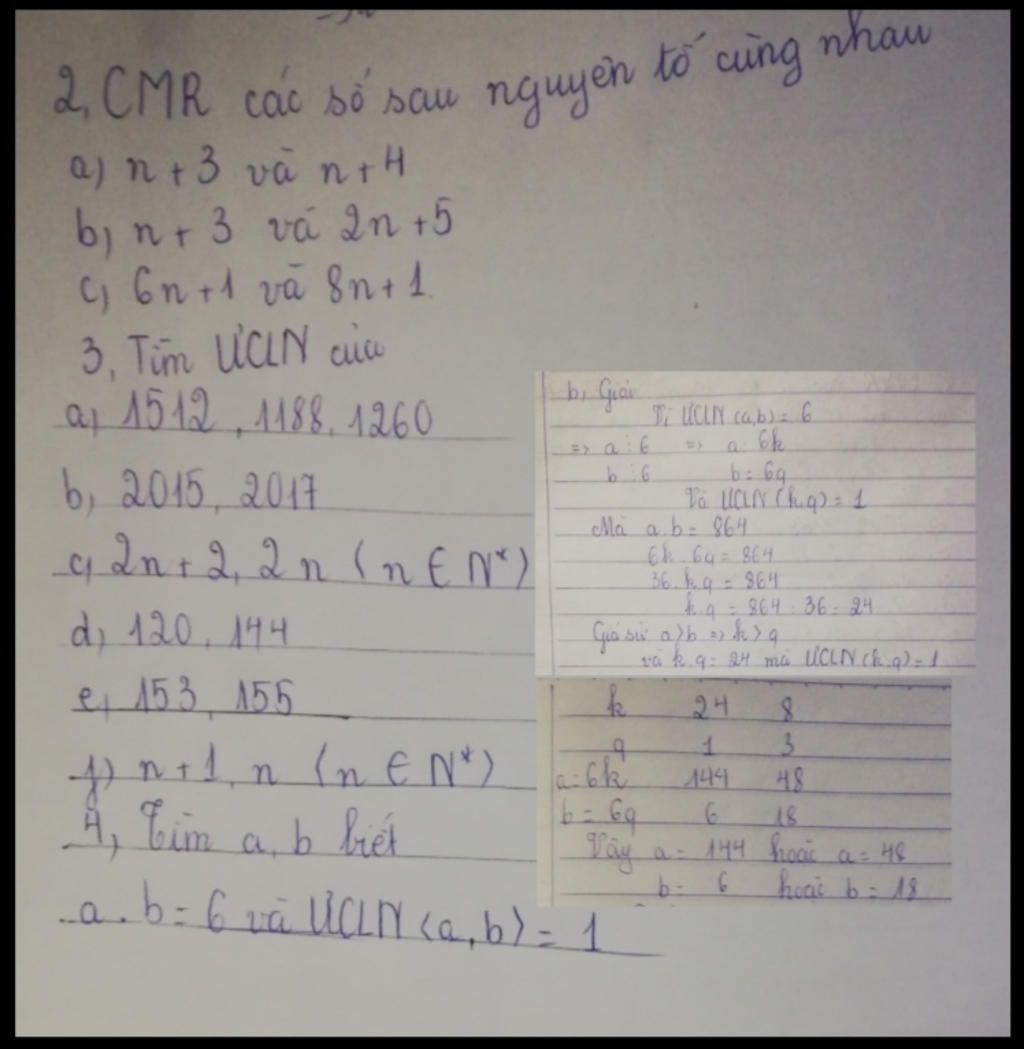 2, CMR các số sau nguyên tố cùng nhau
a) n + 3 và n + 4
b) n + 3 và 2n + 5
c) 6n + 1 và 8n + 1
3, Tìm ƯCLN của
a) 1512, 1188, 1260
b) 2015, 2017
c) 2n + 2, 2n (n ∈ N*)
d) 120, 144
e) 153, 155
f) n + 1, n (n ∈ N*)
4, Tìm a, b biết
a . b = 6 và ƯCLN (a, b) = 1
b, Giải
Vì ƯCLN (a,b) = 6
=> a ⋮ 6 => a = 6k
b ⋮ 6 b = 6q
Và ƯCLN (k,q) = 1
Mà a.b = 864
6k . 6q = 864
36 . k.q = 864
k.q = 864 : 36 = 24
Giả sử a > b => k > q
và k.q = 24 mà ƯCLN (k,q) = 1
k 24 8
q 1 3
a = 6k 144 48
b = 6q 6 18
Vậy a = 144 hoặc a = 48
b = 6 hoặc b = 18